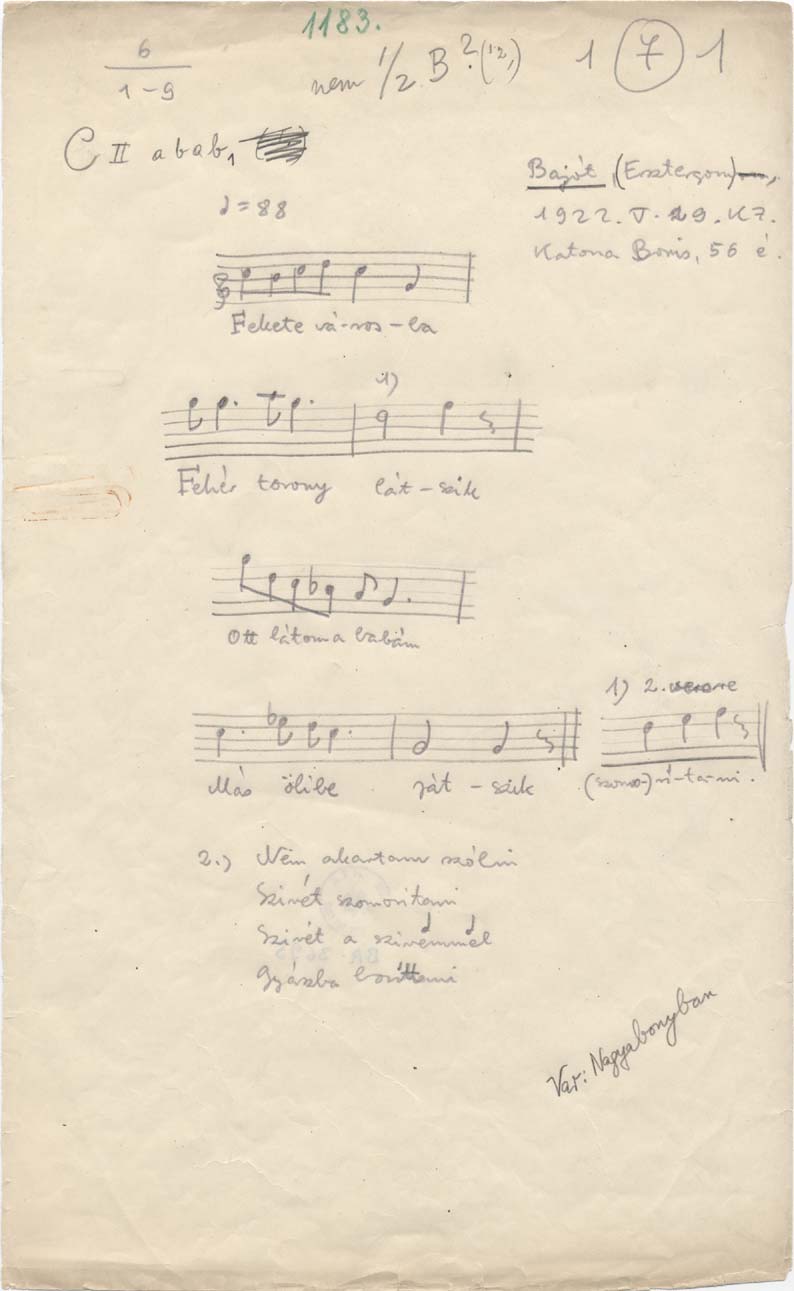 1183.
6
1-9
nem 1/2 B? (12,)
1 7 1
C II abab, 
Bajót (Esztergom),
♩=88
1922. V. 29. KZ.
Katona Boris, 56 é.
Fekete vá-ros-ba
1)
Fehér torony lát-szik
Ott látom a babám
1) 2. versre
Más ölibe ját-szik
(szomo-)rí-ta-ni.
2.) Nem akartam szólni
Szivét szomorítani
Szivét a szivemmel
Gyászba borítani
Var: Nagyabonyban